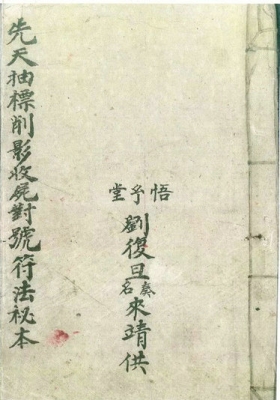 悟乎堂
劉復旦奏名來靖供
先天抽標削影收屍對號符法祕本